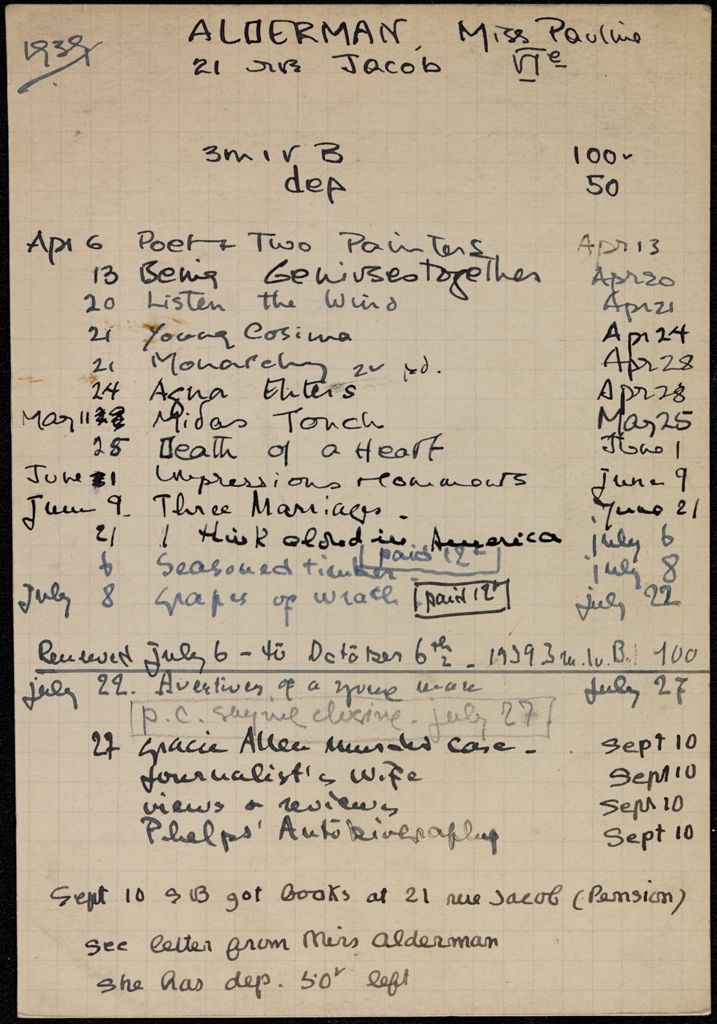 1939
ALDERMAN, Miss Pauline
21 rue Jacob VIe
3m 1 v B 100-
dep 50
Apr 6 Poet + Two Painters Apr 13
13 Being Geniuses together Apr 20
20 Listen the Wind Apr 21
21 Young Cosima Apr 24
21 Monarchy Apr 28
24 Agna Enters Apr 28
May 11 Midas Touch May 25
25 Death of a Heart June 1
June 1 Impressions June 9
June 9. Three Marriages. June 21
21 I think aloud in America july 6
6 Seasoned timber july 8
paid 12
July 8 grapes of wrath paid 12 july 22
Renewed july 6 - to October 6th - 1939 3 m. 1 v. B. 100
july 22. of a young man july 27
p.c. saying closing. july 27
27 gracie Allen Murder case - Sept 10
Journalist's Wife Sept 10
views & reviews Sept 10
Phelps' Autobiography Sept 10
Sept 10 SB got books at 21 rue Jacob (Pension)
see letter from Miss Alderman
she has dep. 50 left